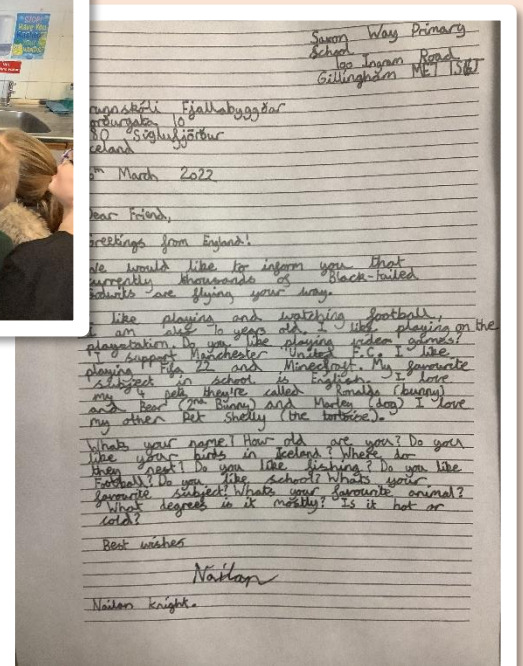 STOP!
HAVE YOU
Saxon Way Primary
School
100 Ingram Road
Gillingham ME7
runnskóli Fjallabyggðar
orðurgata 10
80 Siglufjörður
celand
th March 2022
ear Friend,
reetings from England!
We would like to inform you that
currently thousands of Black-tailed
odwits are flying your way.
I like playing and watching football,
i am also 10 years old. I like playing on the
playstation. Do you like playing video games?
I support Manchester United F.C. I like
playing Fifa 22 and Minecroft. My favourite
subject in school is English. I love
my 4 pets they're called Ronaldo (bunny)
and Bear (2nd Bunny) and Marley (dog) I love
my other Pet Shelly (the tortoise).
Whats your name? How old are you? Do you
like your birds in Iceland? Where do
they nest? Do you like fishing? Do you like
Football? Do you like school? Whats your
favourite subject? Whats your favourite animal?
What degrees is it mostly? Is it hot or
cold?
Best wishes
Nailan
Nailan knight.